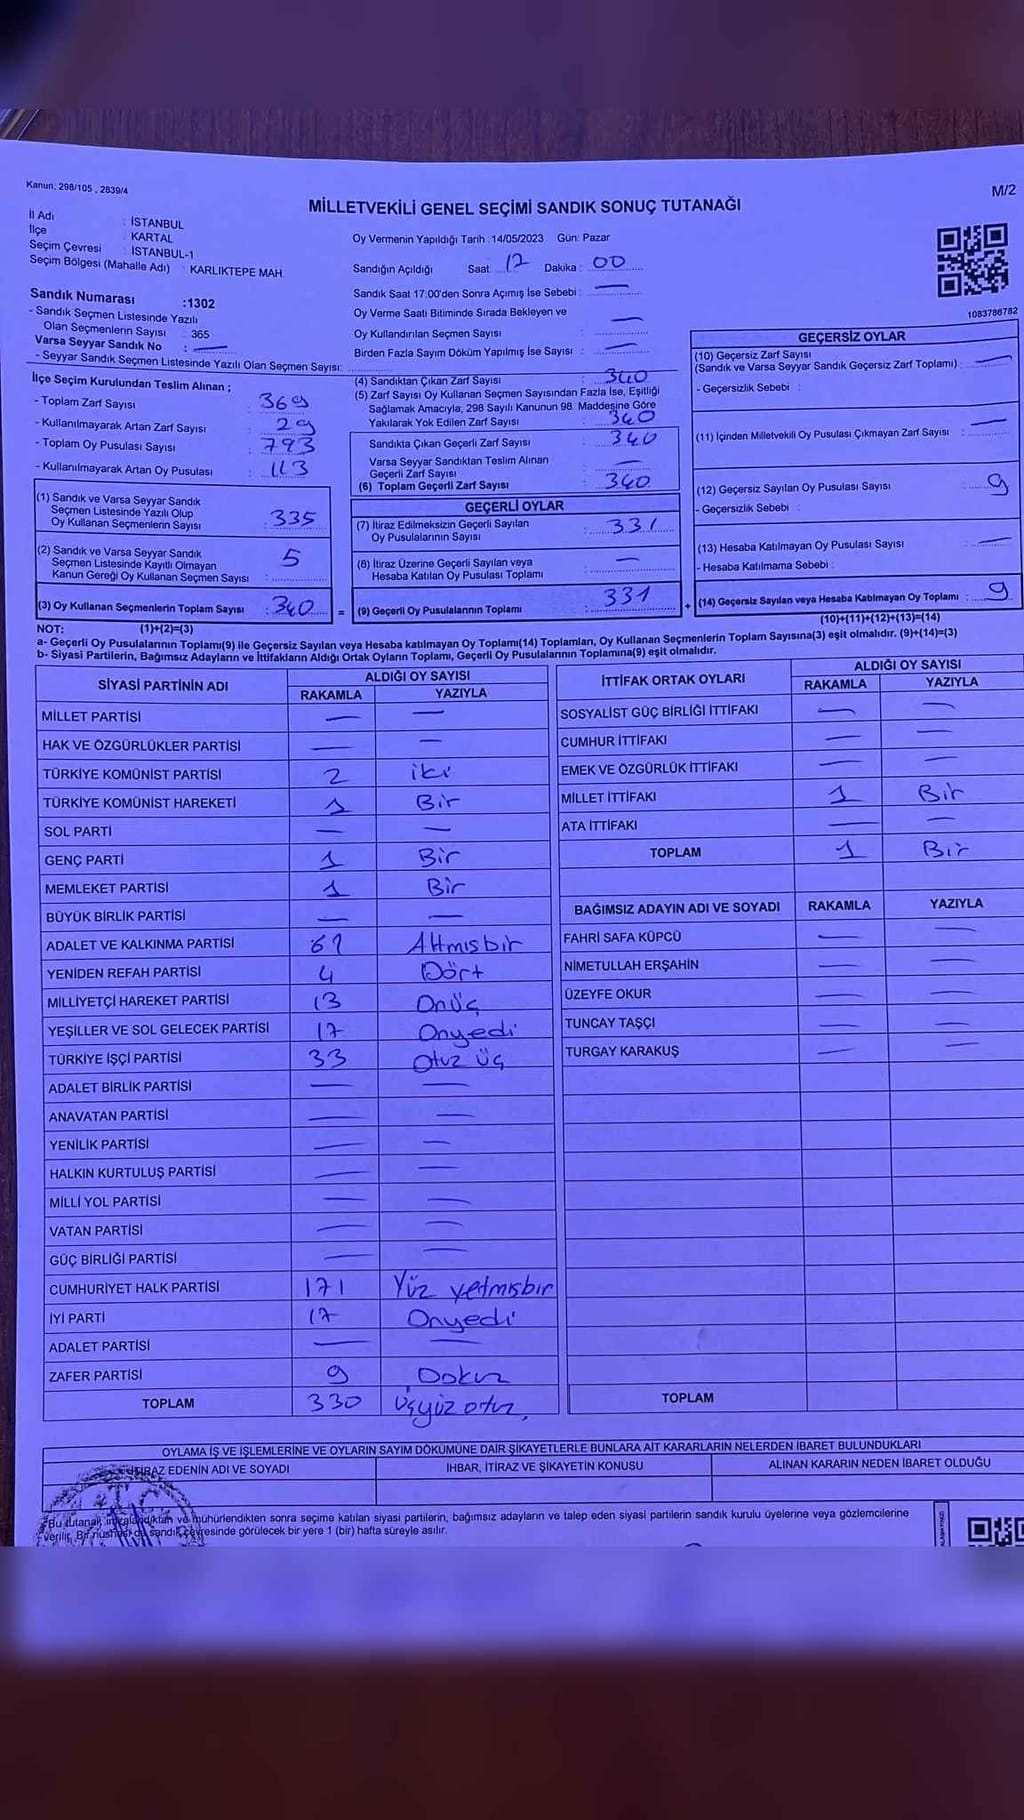 Kanun; 298/105 , 2839/4
M/2
MİLLETVEKİLİ GENEL SEÇİMİ SANDIK SONUÇ TUTANAĞI
İl Adı : İSTANBUL
İlçe : KARTAL
Seçim Çevresi : İSTANBUL-1
Seçim Bölgesi (Mahalle Adı) : KARLIKTEPE MAH
Sandık Numarası :1302
- Sandık Seçmen Listesinde Yazılı
Olan Seçmenlerin Sayısı : 365
Varsa Seyyar Sandık No : —
- Seyyar Sandık Seçmen Listesinde Yazılı Olan Seçmen Sayısı:
Oy Vermenin Yapıldığı Tarih :14/05/2023 Gün: Pazar
Sandığın Açıldığı Saat: 17 Dakika : 00
Sandık Saat 17:00'den Sonra Açımış İse Sebebi : —
Oy Verme Saati Bitiminde Sırada Bekleyen ve
Oy Kullandırılan Seçmen Sayısı : —
Birden Fazla Sayım Döküm Yapılmış İse Sayısı : —
1083786782
İlçe Seçim Kurulundan Teslim Alınan ;
- Toplam Zarf Sayısı : 369
- Kullanılmayarak Artan Zarf Sayısı : 29
- Toplam Oy Pusulası Sayısı : 793
- Kullanılmayarak Artan Oy Pusulası : 113
(1) Sandık ve Varsa Seyyar Sandık
Seçmen Listesinde Yazılı Olup
Oy Kullanan Seçmenlerin Sayısı : 335
(2) Sandık ve Varsa Seyyar Sandık
Seçmen Listesinde Kayıtlı Olmayan
Kanun Gereği Oy Kullanan Seçmen Sayısı : 5
(3) Oy Kullanan Seçmenlerin Toplam Sayısı : 340
(1)+(2)=(3)
(4) Sandıktan Çıkan Zarf Sayısı : 340
(5) Zarf Sayısı Oy Kullanan Seçmen Sayısından Fazla İse, Eşitliği
Sağlamak Amacıyla, 298 Sayılı Kanunun 98. Maddesine Göre
Yakılarak Yok Edilen Zarf Sayısı : 340
Sandıkta Çıkan Geçerli Zarf Sayısı : 340
Varsa Seyyar Sandıktan Teslim Alınan
Geçerli Zarf Sayısı : —
(6) Toplam Geçerli Zarf Sayısı : 340
GEÇERLİ OYLAR
(7) İtiraz Edilmeksizin Geçerli Sayılan
Oy Pusulalarının Sayısı : 331
(8) İtiraz Üzerine Geçerli Sayılan veya
Hesaba Katılan Oy Pusulası Toplamı : —
= (9) Geçerli Oy Pusulalarının Toplamı : 331
GEÇERSİZ OYLAR
(10) Geçersiz Zarf Sayısı
(Sandık ve Varsa Seyyar Sandık Geçersiz Zarf Toplamı) : —
- Geçersizlik Sebebi :
(11) İçinden Milletvekili Oy Pusulası Çıkmayan Zarf Sayısı : —
(12) Geçersiz Sayılan Oy Pusulası Sayısı : 9
- Geçersizlik Sebebi :
(13) Hesaba Katılmayan Oy Pusulası Sayısı : —
- Hesaba Katılmama Sebebi :
+ (14) Geçersiz Sayılan veya Hesaba Katılmayan Oy Toplamı : 9
(10)+(11)+(12)+(13)=(14)
NOT:
a- Geçerli Oy Pusulalarının Toplamı(9) ile Geçersiz Sayılan veya Hesaba katılmayan Oy Toplamı(14) Toplamları, Oy Kullanan Seçmenlerin Toplam Sayısına(3) eşit olmalıdır. (9)+(14)=(3)
b- Siyasi Partilerin, Bağımsız Adayların ve İttifakların Aldığı Ortak Oyların Toplamı, Geçerli Oy Pusulalarının Toplamına(9) eşit olmalıdır.
SİYASİ PARTİNİN ADI ALDIĞI OY SAYISI
RAKAMLA YAZIYLA
MİLLET PARTİSİ — —
HAK VE ÖZGÜRLÜKLER PARTİSİ — —
TÜRKİYE KOMÜNİST PARTİSİ 2 iki
TÜRKİYE KOMÜNİST HAREKETİ 1 Bir
SOL PARTİ — —
GENÇ PARTİ 1 Bir
MEMLEKET PARTİSİ 1 Bir
BÜYÜK BİRLİK PARTİSİ — —
ADALET VE KALKINMA PARTİSİ 61 Altmışbir
YENİDEN REFAH PARTİSİ 4 Dört
MİLLİYETÇİ HAREKET PARTİSİ 13 Onüç
YEŞİLLER VE SOL GELECEK PARTİSİ 17 Onyedi
TÜRKİYE İŞÇİ PARTİSİ 33 Otuz üç
ADALET BİRLİK PARTİSİ — —
ANAVATAN PARTİSİ — —
YENİLİK PARTİSİ — —
HALKIN KURTULUŞ PARTİSİ — —
MİLLİ YOL PARTİSİ — —
VATAN PARTİSİ — —
GÜÇ BİRLİĞİ PARTİSİ — —
CUMHURİYET HALK PARTİSİ 171 Yüz yetmişbir
İYİ PARTİ 17 Onyedi
ADALET PARTİSİ — —
ZAFER PARTİSİ 9 Dokuz
TOPLAM 330 Üçyüz otuz,
İTTİFAK ORTAK OYLARI ALDIĞI OY SAYISI
RAKAMLA YAZIYLA
SOSYALİST GÜÇ BİRLİĞİ İTTİFAKI — —
CUMHUR İTTİFAKI — —
EMEK VE ÖZGÜRLÜK İTTİFAKI — —
MİLLET İTTİFAKI 1 Bir
ATA İTTİFAKI — —
TOPLAM 1 Bir
BAĞIMSIZ ADAYIN ADI VE SOYADI RAKAMLA YAZIYLA
FAHRİ SAFA KÜPCÜ — —
NİMETULLAH ERŞAHİN — —
ÜZEYFE OKUR — —
TUNCAY TAŞÇI — —
TURGAY KARAKUŞ — —
TOPLAM
OYLAMA İŞ VE İŞLEMLERİNE VE OYLARIN SAYIM DÖKÜMÜNE DAİR ŞİKAYETLERLE BUNLARA AİT KARARLARIN NELERDEN İBARET BULUNDUKLARI
İTİRAZ EDENİN ADI VE SOYADI İHBAR, İTİRAZ VE ŞİKAYETİN KONUSU ALINAN KARARIN NEDEN İBARET OLDUĞU
Bu tutanak imzalandıktan ve mühürlendikten sonra seçime katılan siyasi partilerin, bağımsız adayların ve talep eden siyasi partilerin sandık kurulu üyelerine veya gözlemcilerine
verilir. Bir nüshası da sandık çevresinde görülecek bir yere 1 (bir) hafta süreyle asılır.